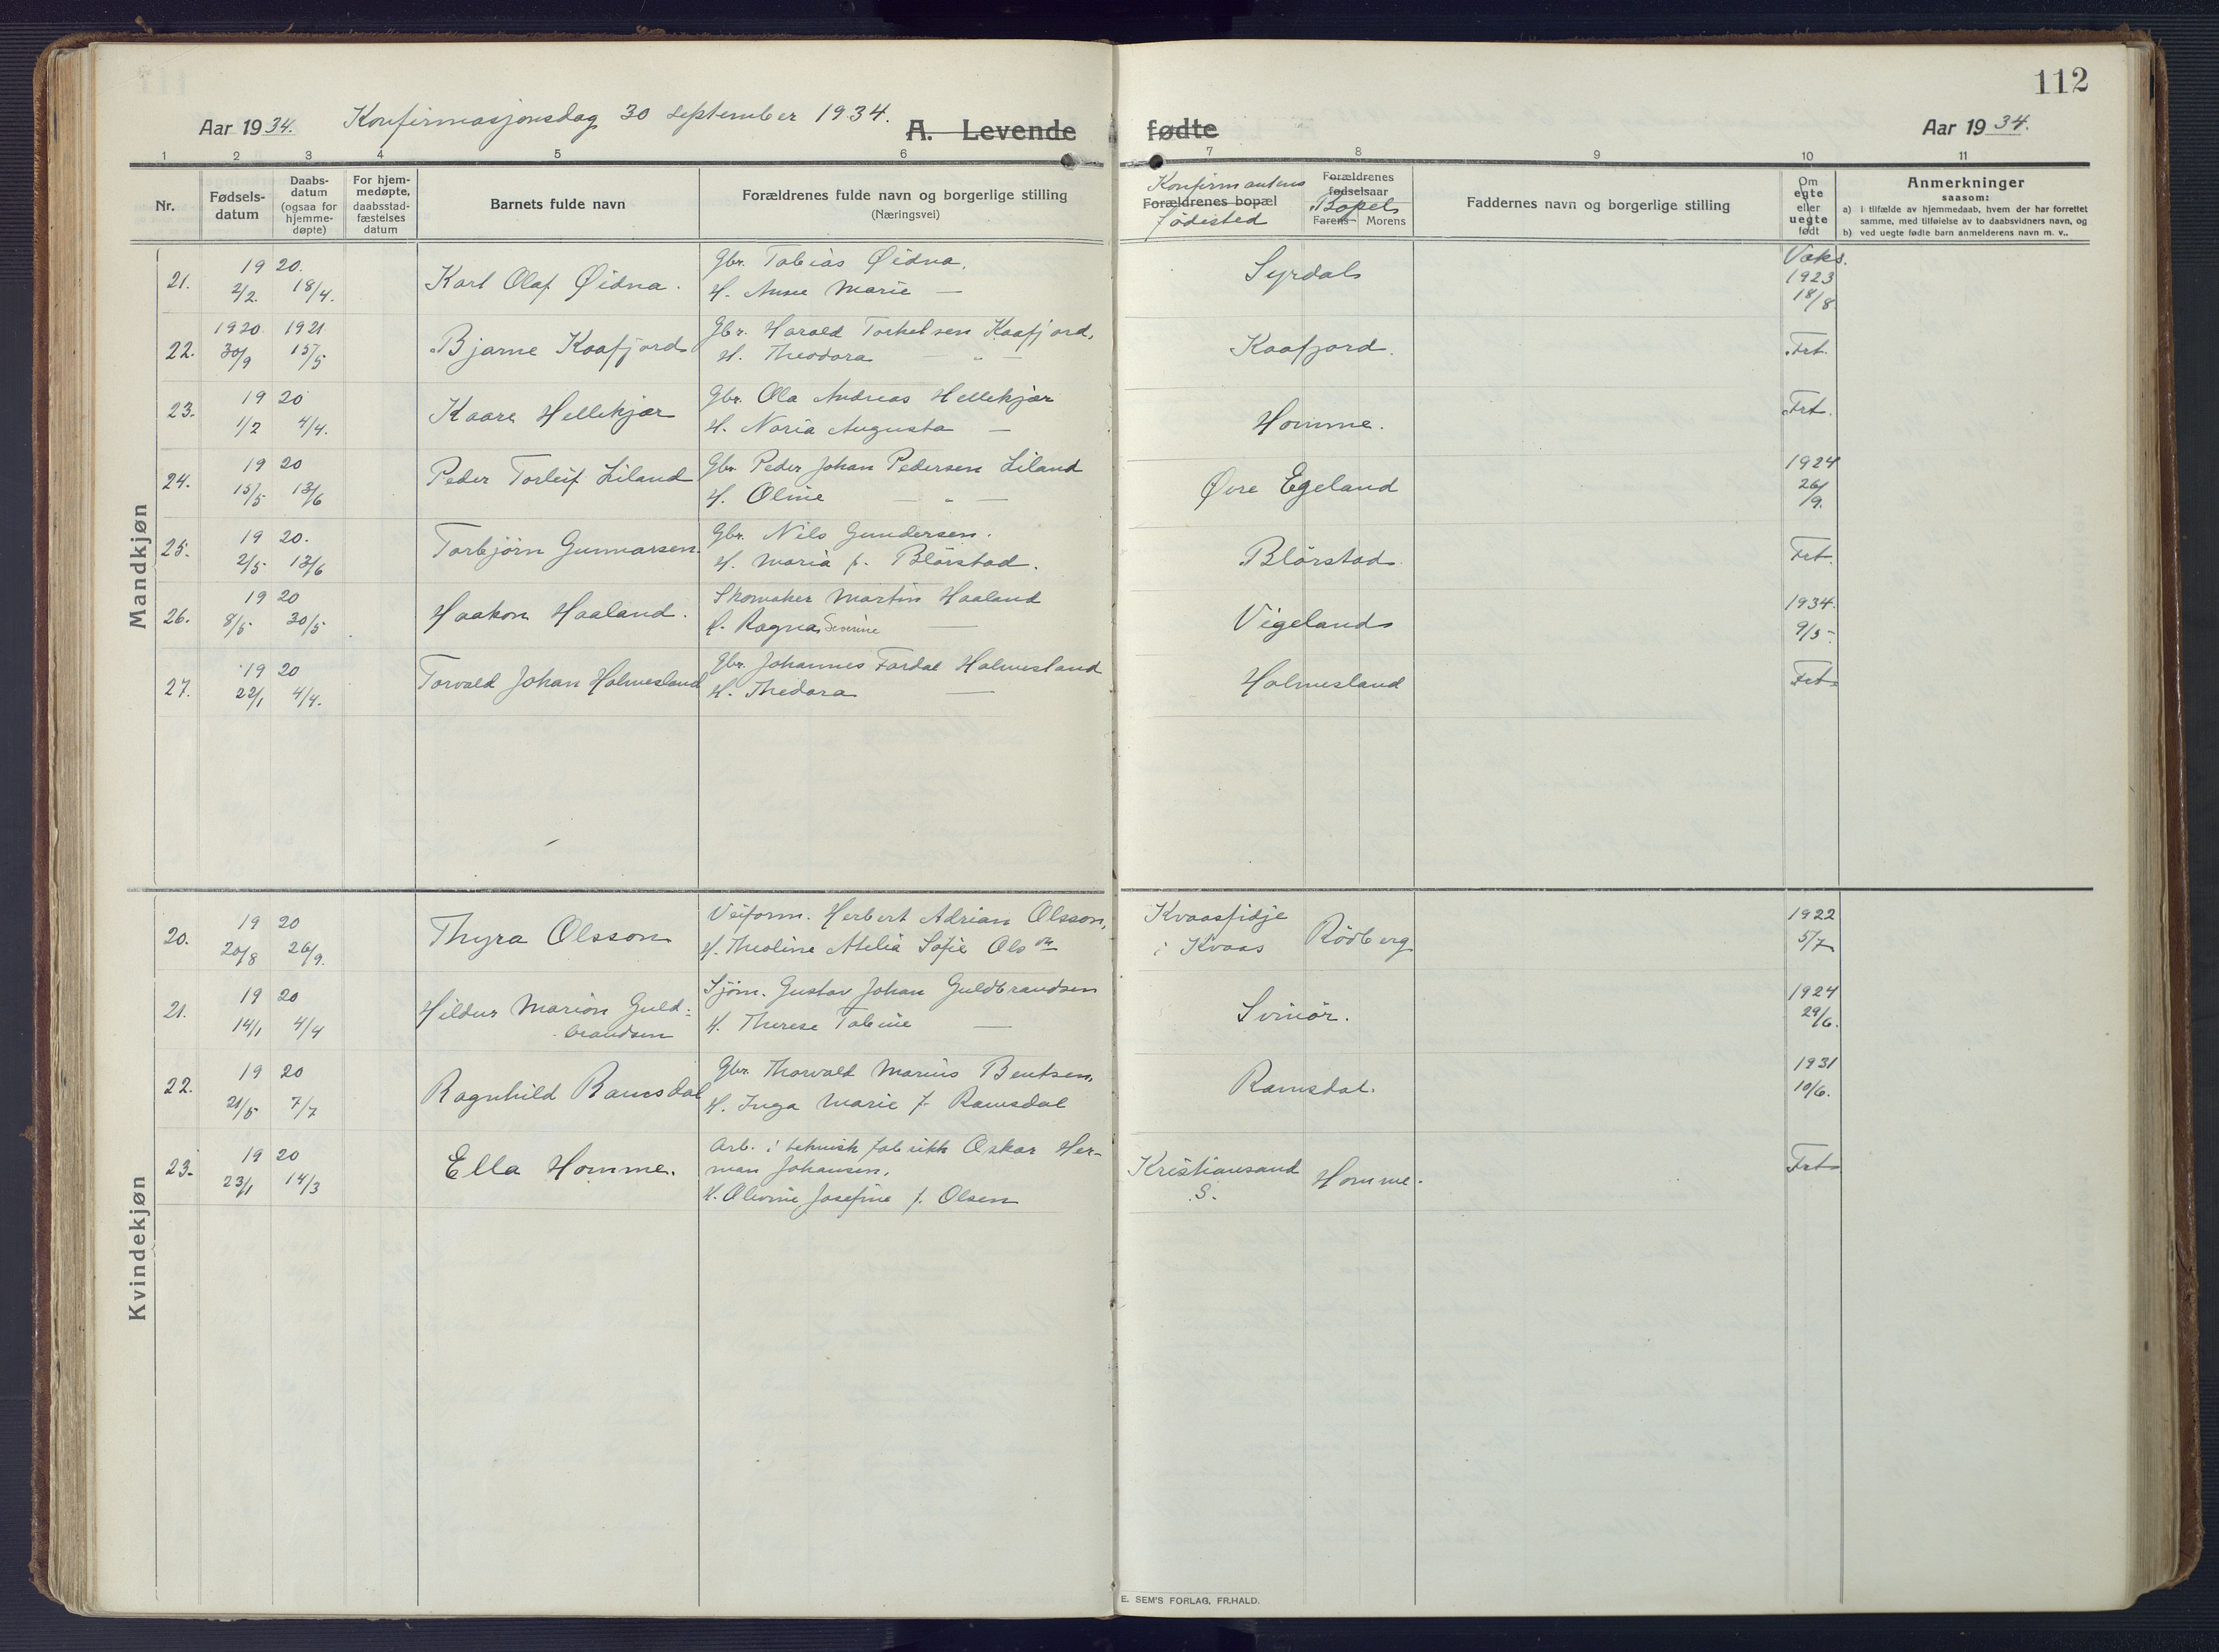 112
Aar 1934. Konfirmasjonsdag 30 september 1934. A. Levende fødte Aar 1934.
1 2 3 4 5 6 7 8 9 10 11
Nr.
Fødsels-
datum
Daabs-
datum
(ogsaa for
hjemme-
døpte)
For hjem-
medøpte,
daabsstad-
fæstelses
datum
Barnets fulde navn
Forældrenes fulde navn og borgerlige stilling
(Næringsvei)
Konfirmantens
Forældrenes bopæl
fødested
Forældrenes
fødselsaar
Bopel
Farens Morens
Faddernes navn og borgerlige stilling
Om
egte
eller
uegte
født
Anmerkninger
saasom:
a) i tilfælde av hjemmedaab, hvem der har forrettet
samme, med tilføielse av to daabsvidners navn, og
b) ved uegte fødte barn anmelderens navn m. v..
Mandkjøn
21. 19 20. 2/2. 18/4. Karl Olaf Øidna.
Gbr. Tobias Øidna.
H. Anne Marie —
Lyrdal
Vaks.
1923
18/8
22. 1920. 30/9 1921 15/5 Bjarne Kaafjord
Gbr. Harald Torkelsen Kaafjord,
H. Theodora " —
Kaafjord.
Frt.
23. 19 20 1/2 4/4. Kaare Hellekjær
Gbr. Ola Andreas Hellekjær
H. Naria Augusta —
Homme.
Frt.
24. 19 20 15/5 13/6 Peder Torleif Liland
Gbr. Peder Johan Pedersen Liland
H. Oline — " —
Øvre Egeland
1924
26/9.
25. 19 20. 2/5 13/6 Torbjørn Gunnarsen.
Gbr. Nils Gundersen.
H. Maria f. Blörstad.
Blörstad
Frt.
26. 19 20 8/5 30/5 Haakon Haaland.
Skomaker Martin Haaland
H. Ragna Severine —
Vigeland
1934.
9/5-
27. 19 20 22/1 4/4. Torvald Johan Holmesland
Gbr. Johannes Fardal Holmesland
H. Thedora —
Holmesland
Frt
Kvindekjøn
20. 19 20 20/8 26/9. Thyra Olsson
Veiform. Herbert Adrian Olsson,
H. Theoline Atelia Sofie Olson
Kvaasfidje
i Kvaas
Rödberg
1922
5/7
21. 19 20 14/1 4/4 Hildur Marion Guld-
brandsen
Sjöm. Gustav Johan Guldbrandsen
H. Therese Tobine —
Svinör.
1924
29/6.
22. 19 20 21/5 7/7 Ragnhild Ramsdal
Gbr. Thorvald Marius Bentsen,
H. Inga Marie f. Ramsdal
Ramsdal.
1931
10/6.
23. 19 20 23/1 14/3 Ella Homme.
Arb. i teknisk fabrikk Oskar Her-
man Johansen,
H. Olivine Josefine f. Olsen
Kristiansand
S.
Homme.
Frt
E. SEM'S FORLAG. FR.HALD.